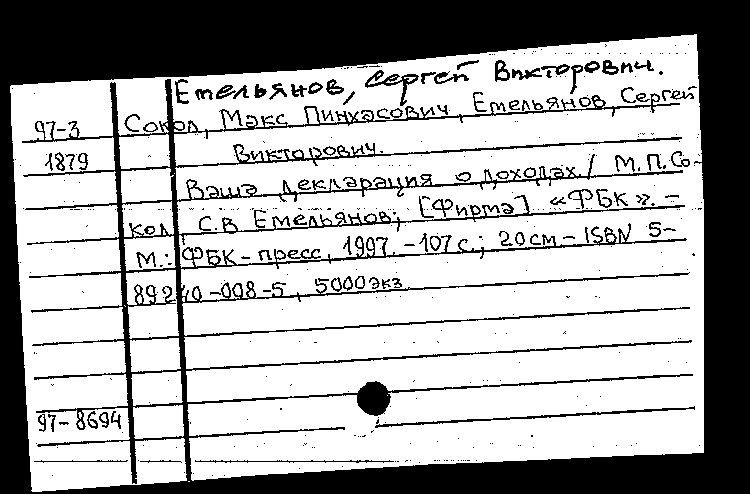 Емельянов, Сергей Викторович.
97-3 Сокол, Макс Пинхасович, Емельянов, Сергей
1879 Викторович.
Ваша декларация о доходах / М.П.Со-
кол, С.В Емельянов; [Фирма] «ФБК». –
М.: ФБК-пресс, 1997. -107с.; 20см – ISBN 5-
89240-008-5, 5000экз
97-8694